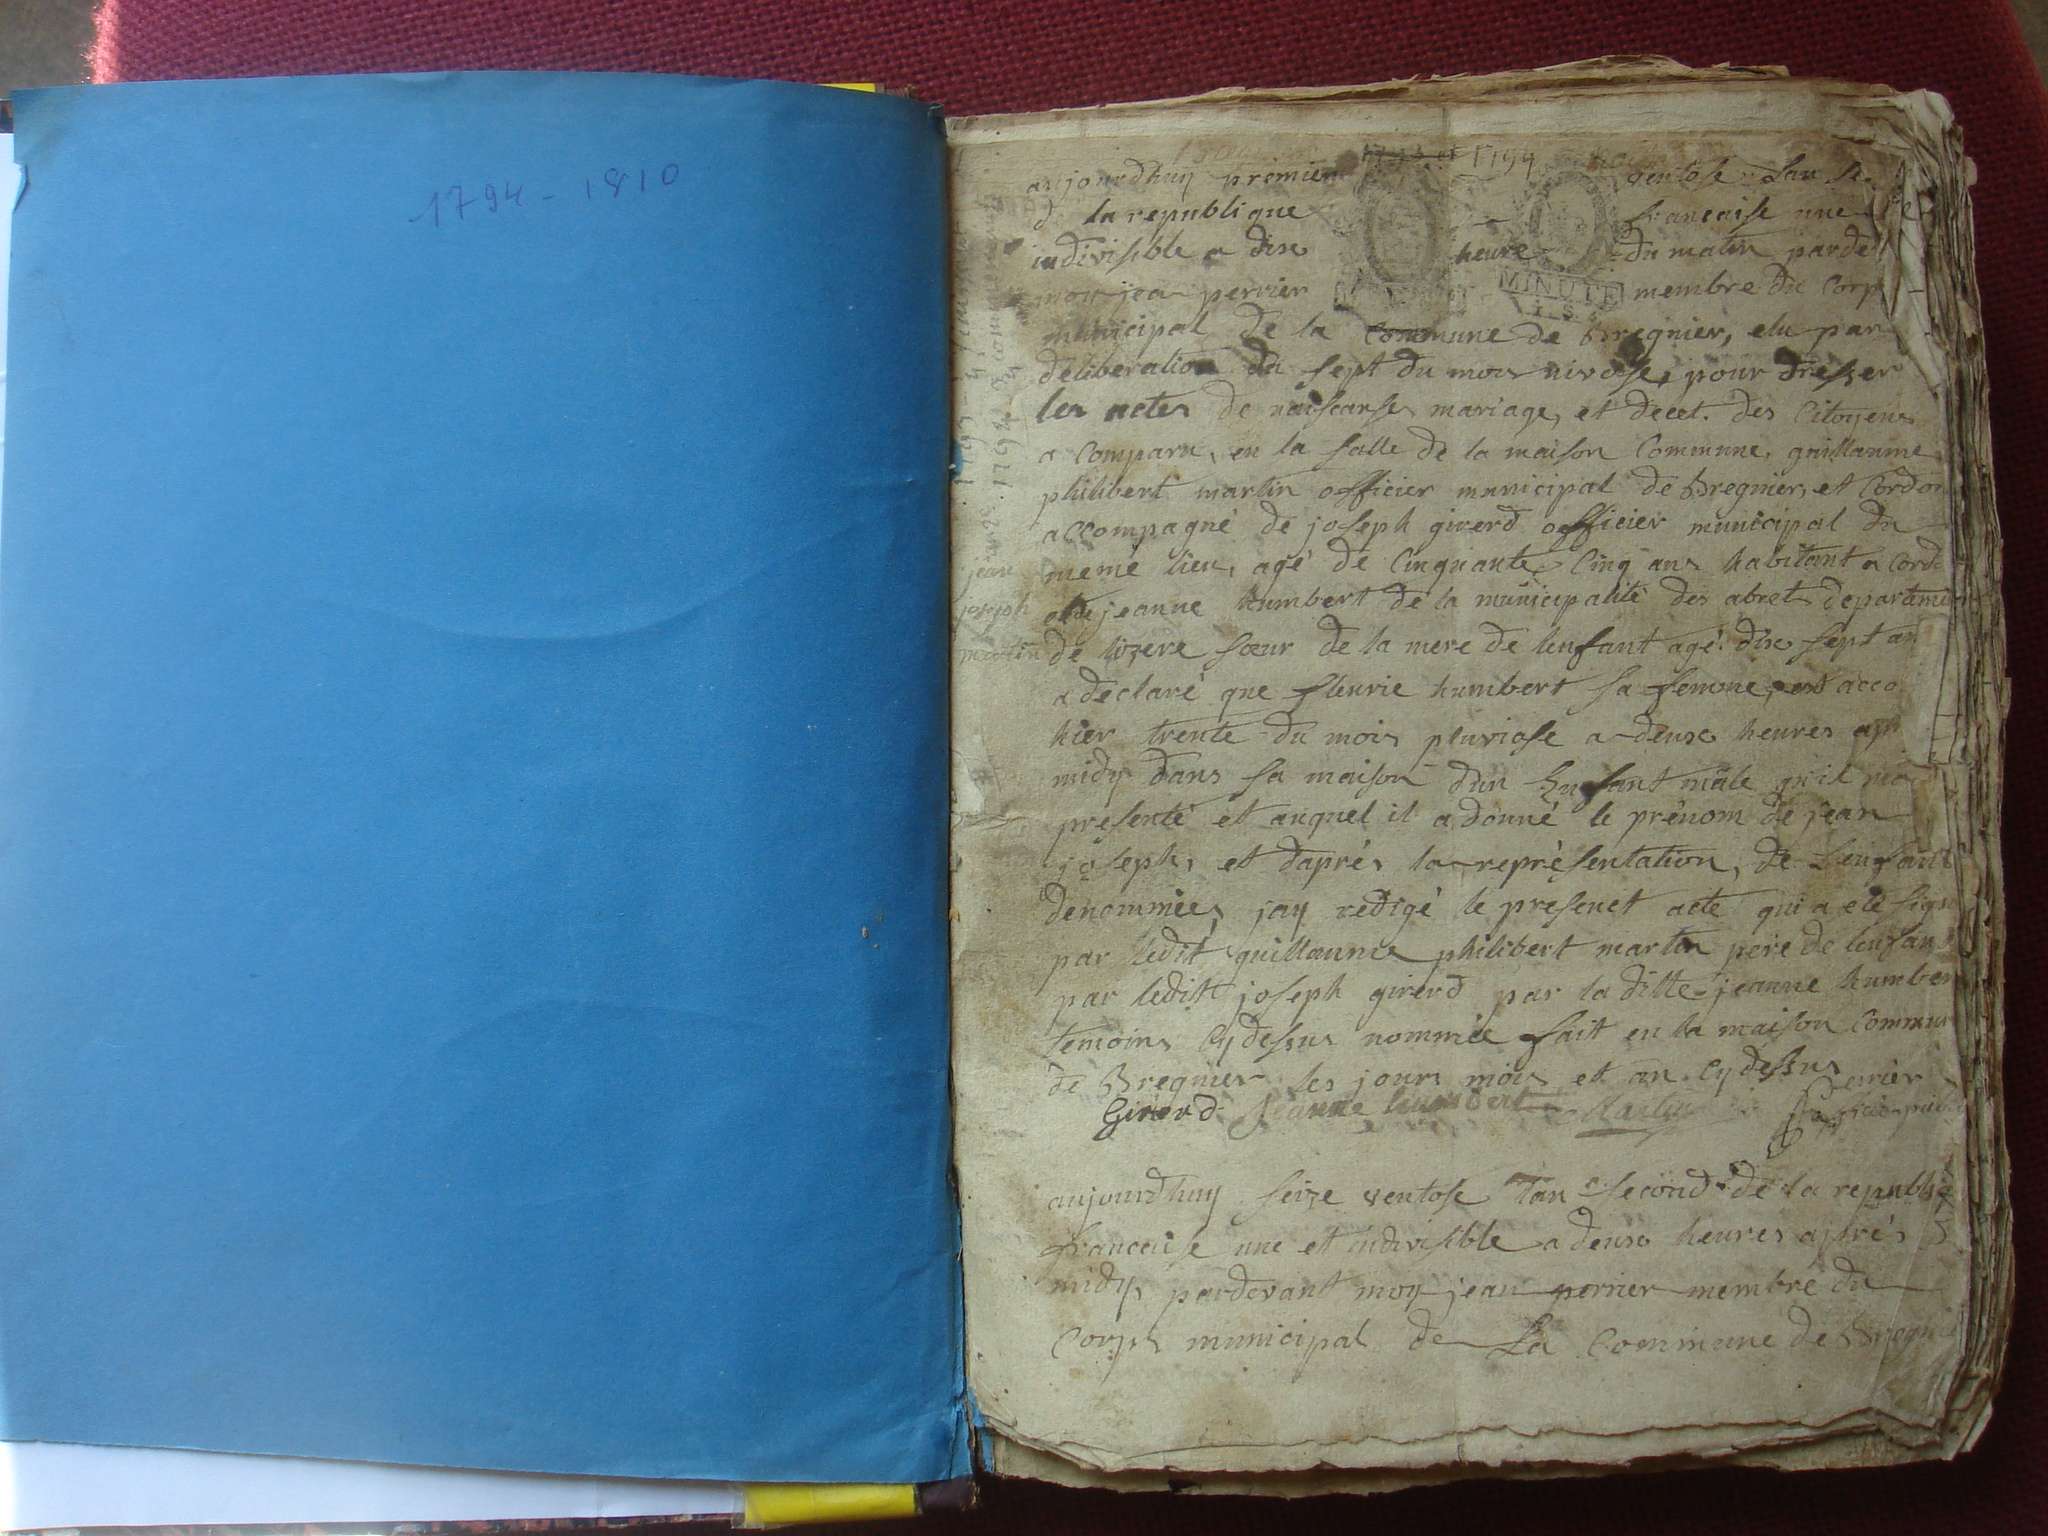 1794 - 1810
1794
aujourdhuy premier gentose lan se
d la republique francaise une
indivisible a dix heure du matin parde
moy jea perrier MINUTE membre du Corp
municipal de la Commune de Bregnier, elu par
deliberation du sept du mois nivose, pour dresser
les actes de naiscanses mariage, et decet. des Citoyens
a Comparu, en la salle de la maison Commune, guillaume
philibert martin officier municipal de Bregnier, et Cordon
accompagné de joseph girerd officier municipal du
meme lieu, agé de Cinquante Cinq ans habitant a Cordo
et de jeanne humbert de la municipalité des abrets departemen
de lizere sœur de la mere de lenfant agé dix sept an
a déclaré que fleurie humbert sa femme, est acco
hier trente du mois pluviose a deux heures apr
midy dans sa maison dun Enfant mâle qu'il ma
présenté et auquel il a donné le prénom de jean
joseph, et daprés la représentation, de Lenfant
denommées, jay redigé le present acte qui a eté sign
par ledit guillaume philibert martin pere de lenfant
par ledit joseph girerd par la ditte jeanne humber
temoins Cy dessus nommée fait en la maison Commun
de Bregnier les jours mois et an Cy dessus
Girerd Jeanne humbert Martin Perrier
officier public
jean
joseph
martin
aujourdhuy seize ventose lan second de la republiq
francaise une et indivisible a deux heures aprés
midy, pardevant moy jean perrier membre du
Corps municipal de La Commune de Bregni